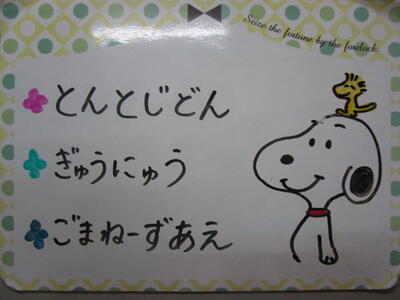 Seize the fortune by the forelock.
とんとじどん
ぎゅうにゅう
ごまねーずあえ